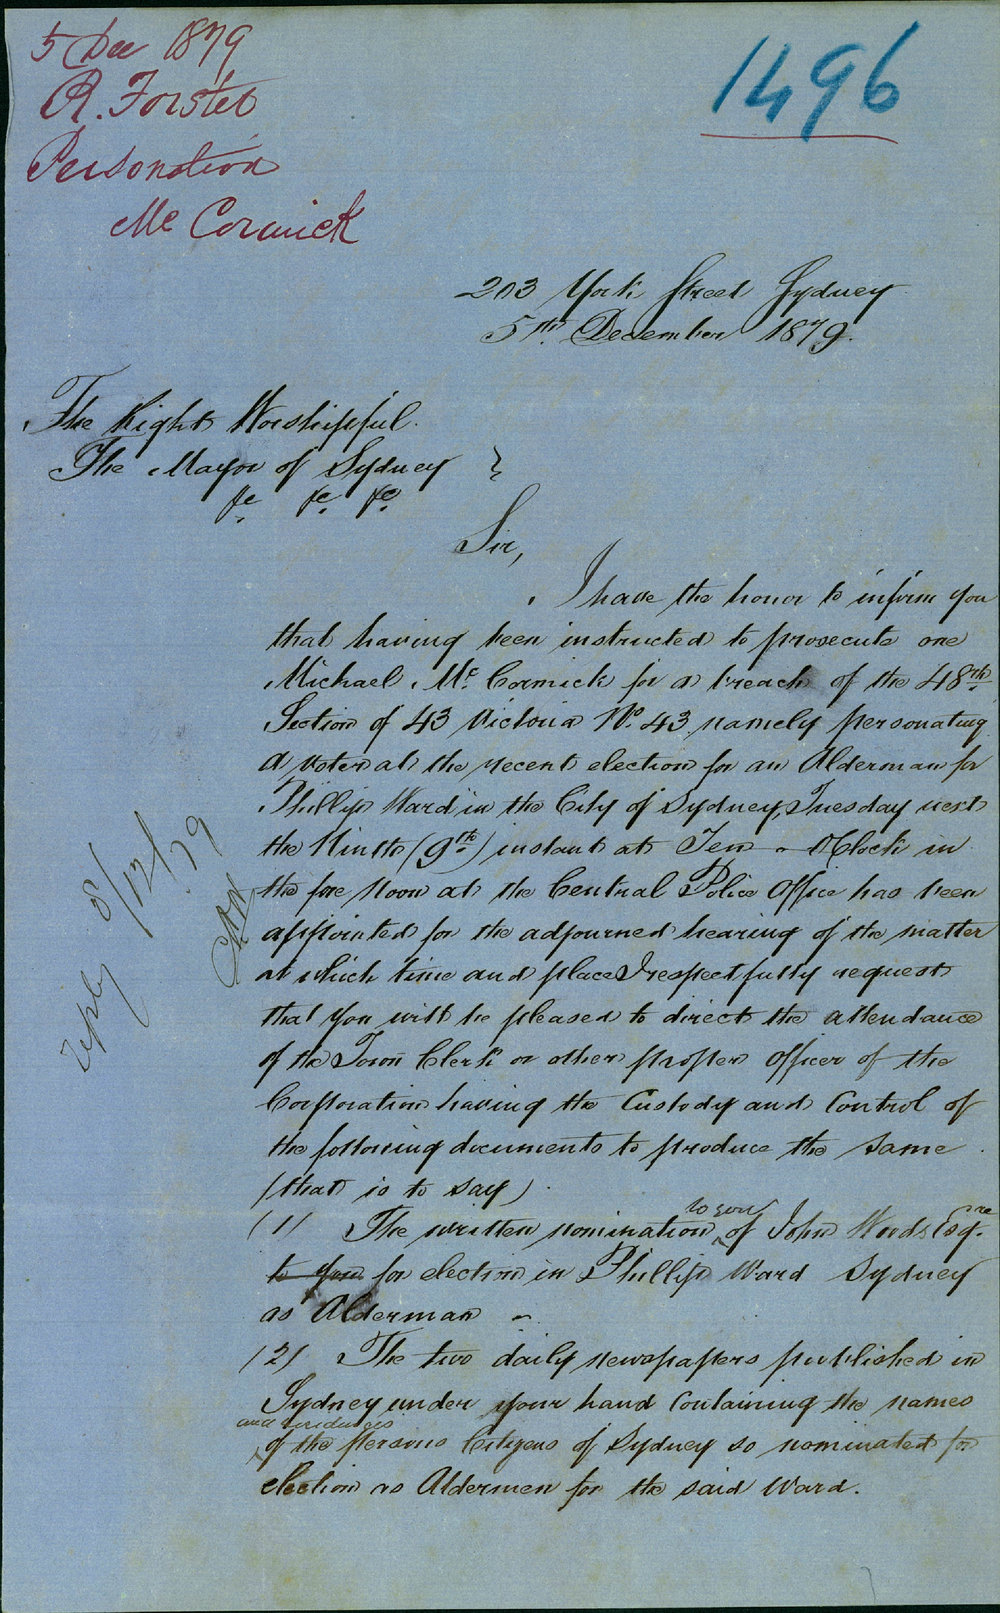 5 Dec 1879
R. Forster
Personation
Mc Cormick
1496
203 York Street Sydney
5th. December 1879.
The Right Worshipful.
The Mayor of Sydney }
&c. &c. &c.
Sir,
I have the honor to inform you
that having been instructed to prosecute one
Michael Mc. Cormick for a breach of the 48th.
Section of 43 Victoria No. 43, namely personating
a voter at the recent election for an Alderman for
Phillip Ward in the City of Sydney, Tuesday next
the Ninth (9th.) instant at Ten - O'Clock in
the fore Noon at the Central Police Office has been
appointed for the adjourned hearing of the matter
at which time and place I respectfully request
that you will be pleased to direct the attendance
of the Town Clerk or other proper Officer of the
Corporation having the Custody and Control of
the following documents to produce the same
(that is to say)
(1) The written nomination to you of John Woods Esqre.
to you for election in Phillip Ward Sydney
as Alderman -
(2) The two daily newspapers published in
Sydney under your hand Containing the names
and residences
of the persons Citizens of Sydney so nominated for
election as Aldermen for the said Ward.
reply 8/12/79